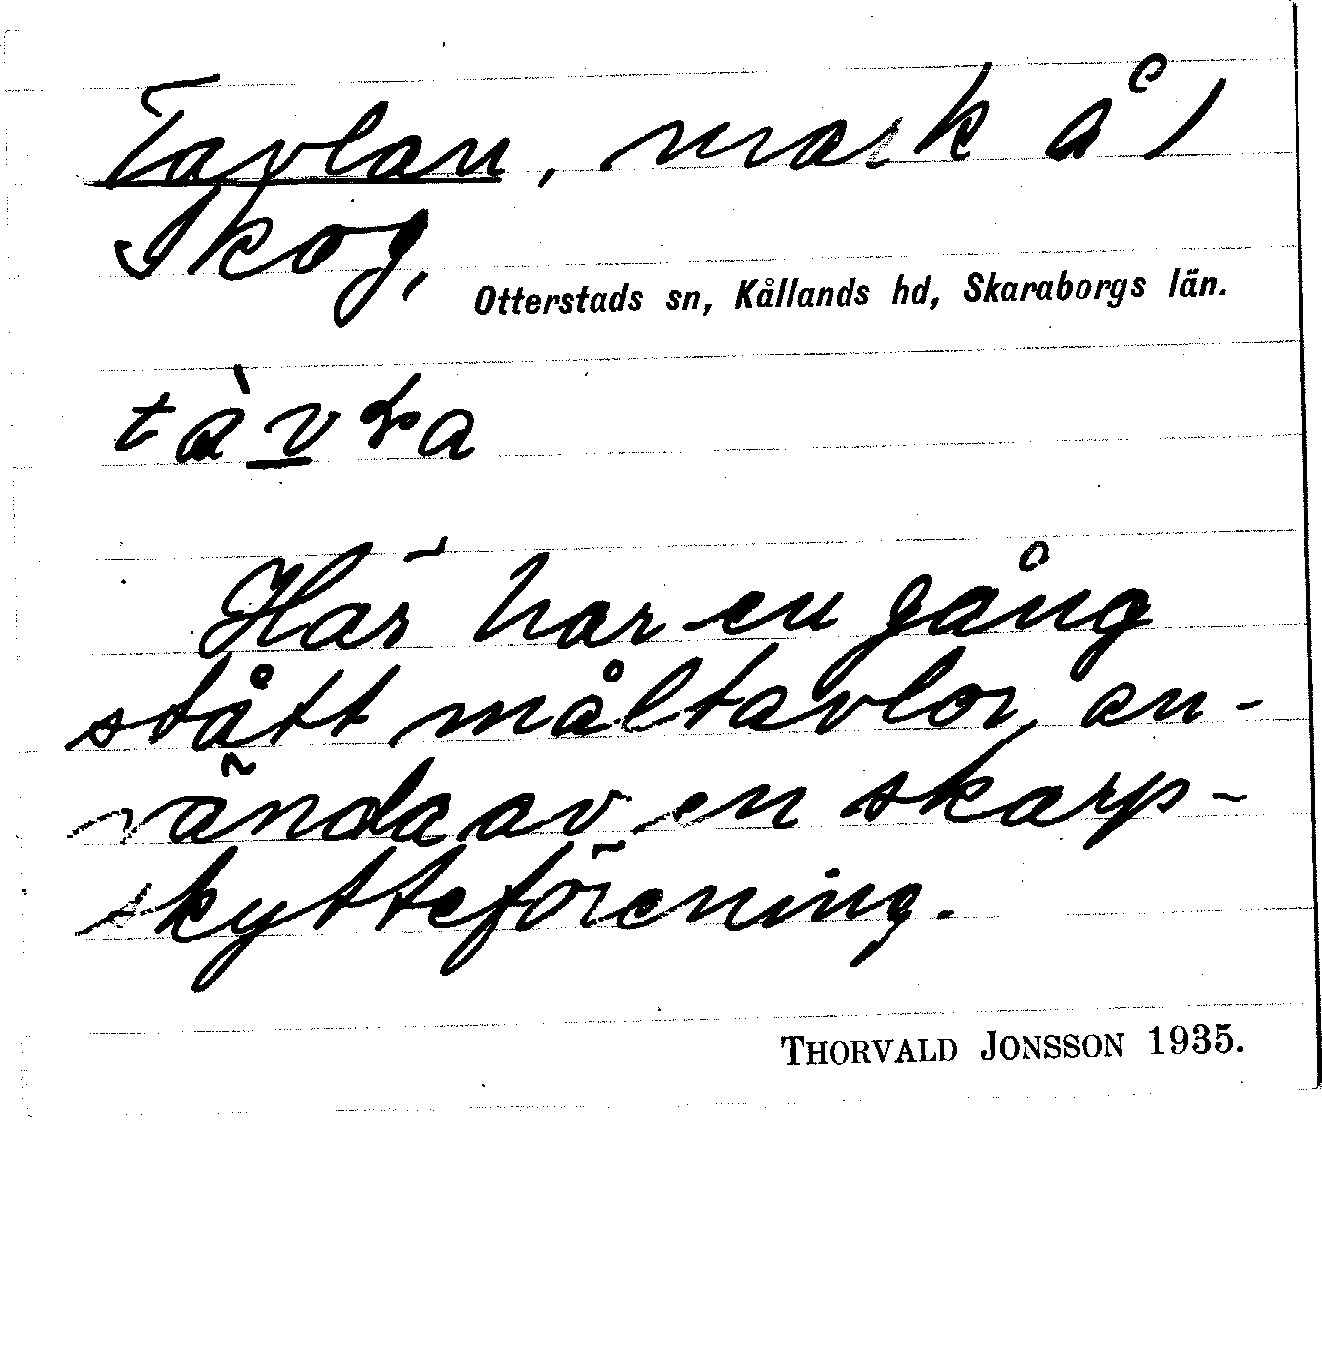 Tavlan, mark å 1
Skog,
Otterstads sn, Kållands hd, Skaraborgs län.
Här har en gång
stått måltavlor, an-
vända av en skarp-
skytteförening.
THORVALD JONSSON 1935.